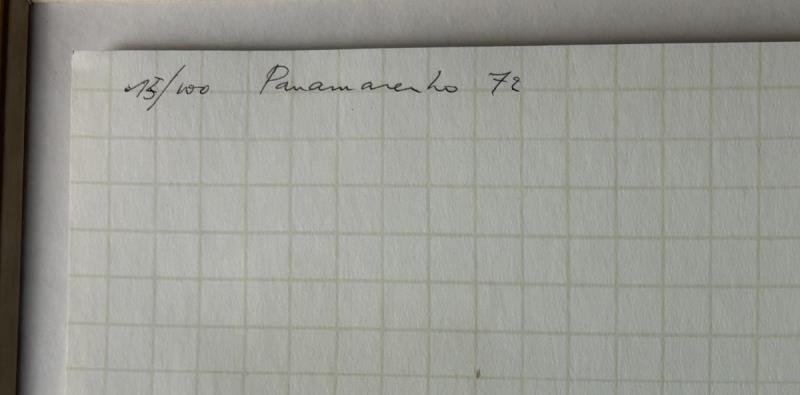 15/100 Panamarenko 72